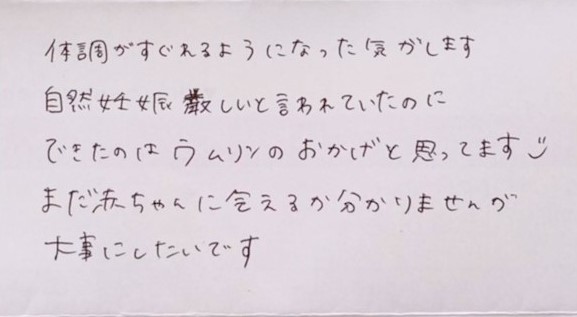 体調がすぐれるようになった気がします
自然妊娠厳しいと言われていたのに
できたのはウムリンのおかげと思ってます
まだ赤ちゃんに会えるか分かりませんが
大事にしたいです